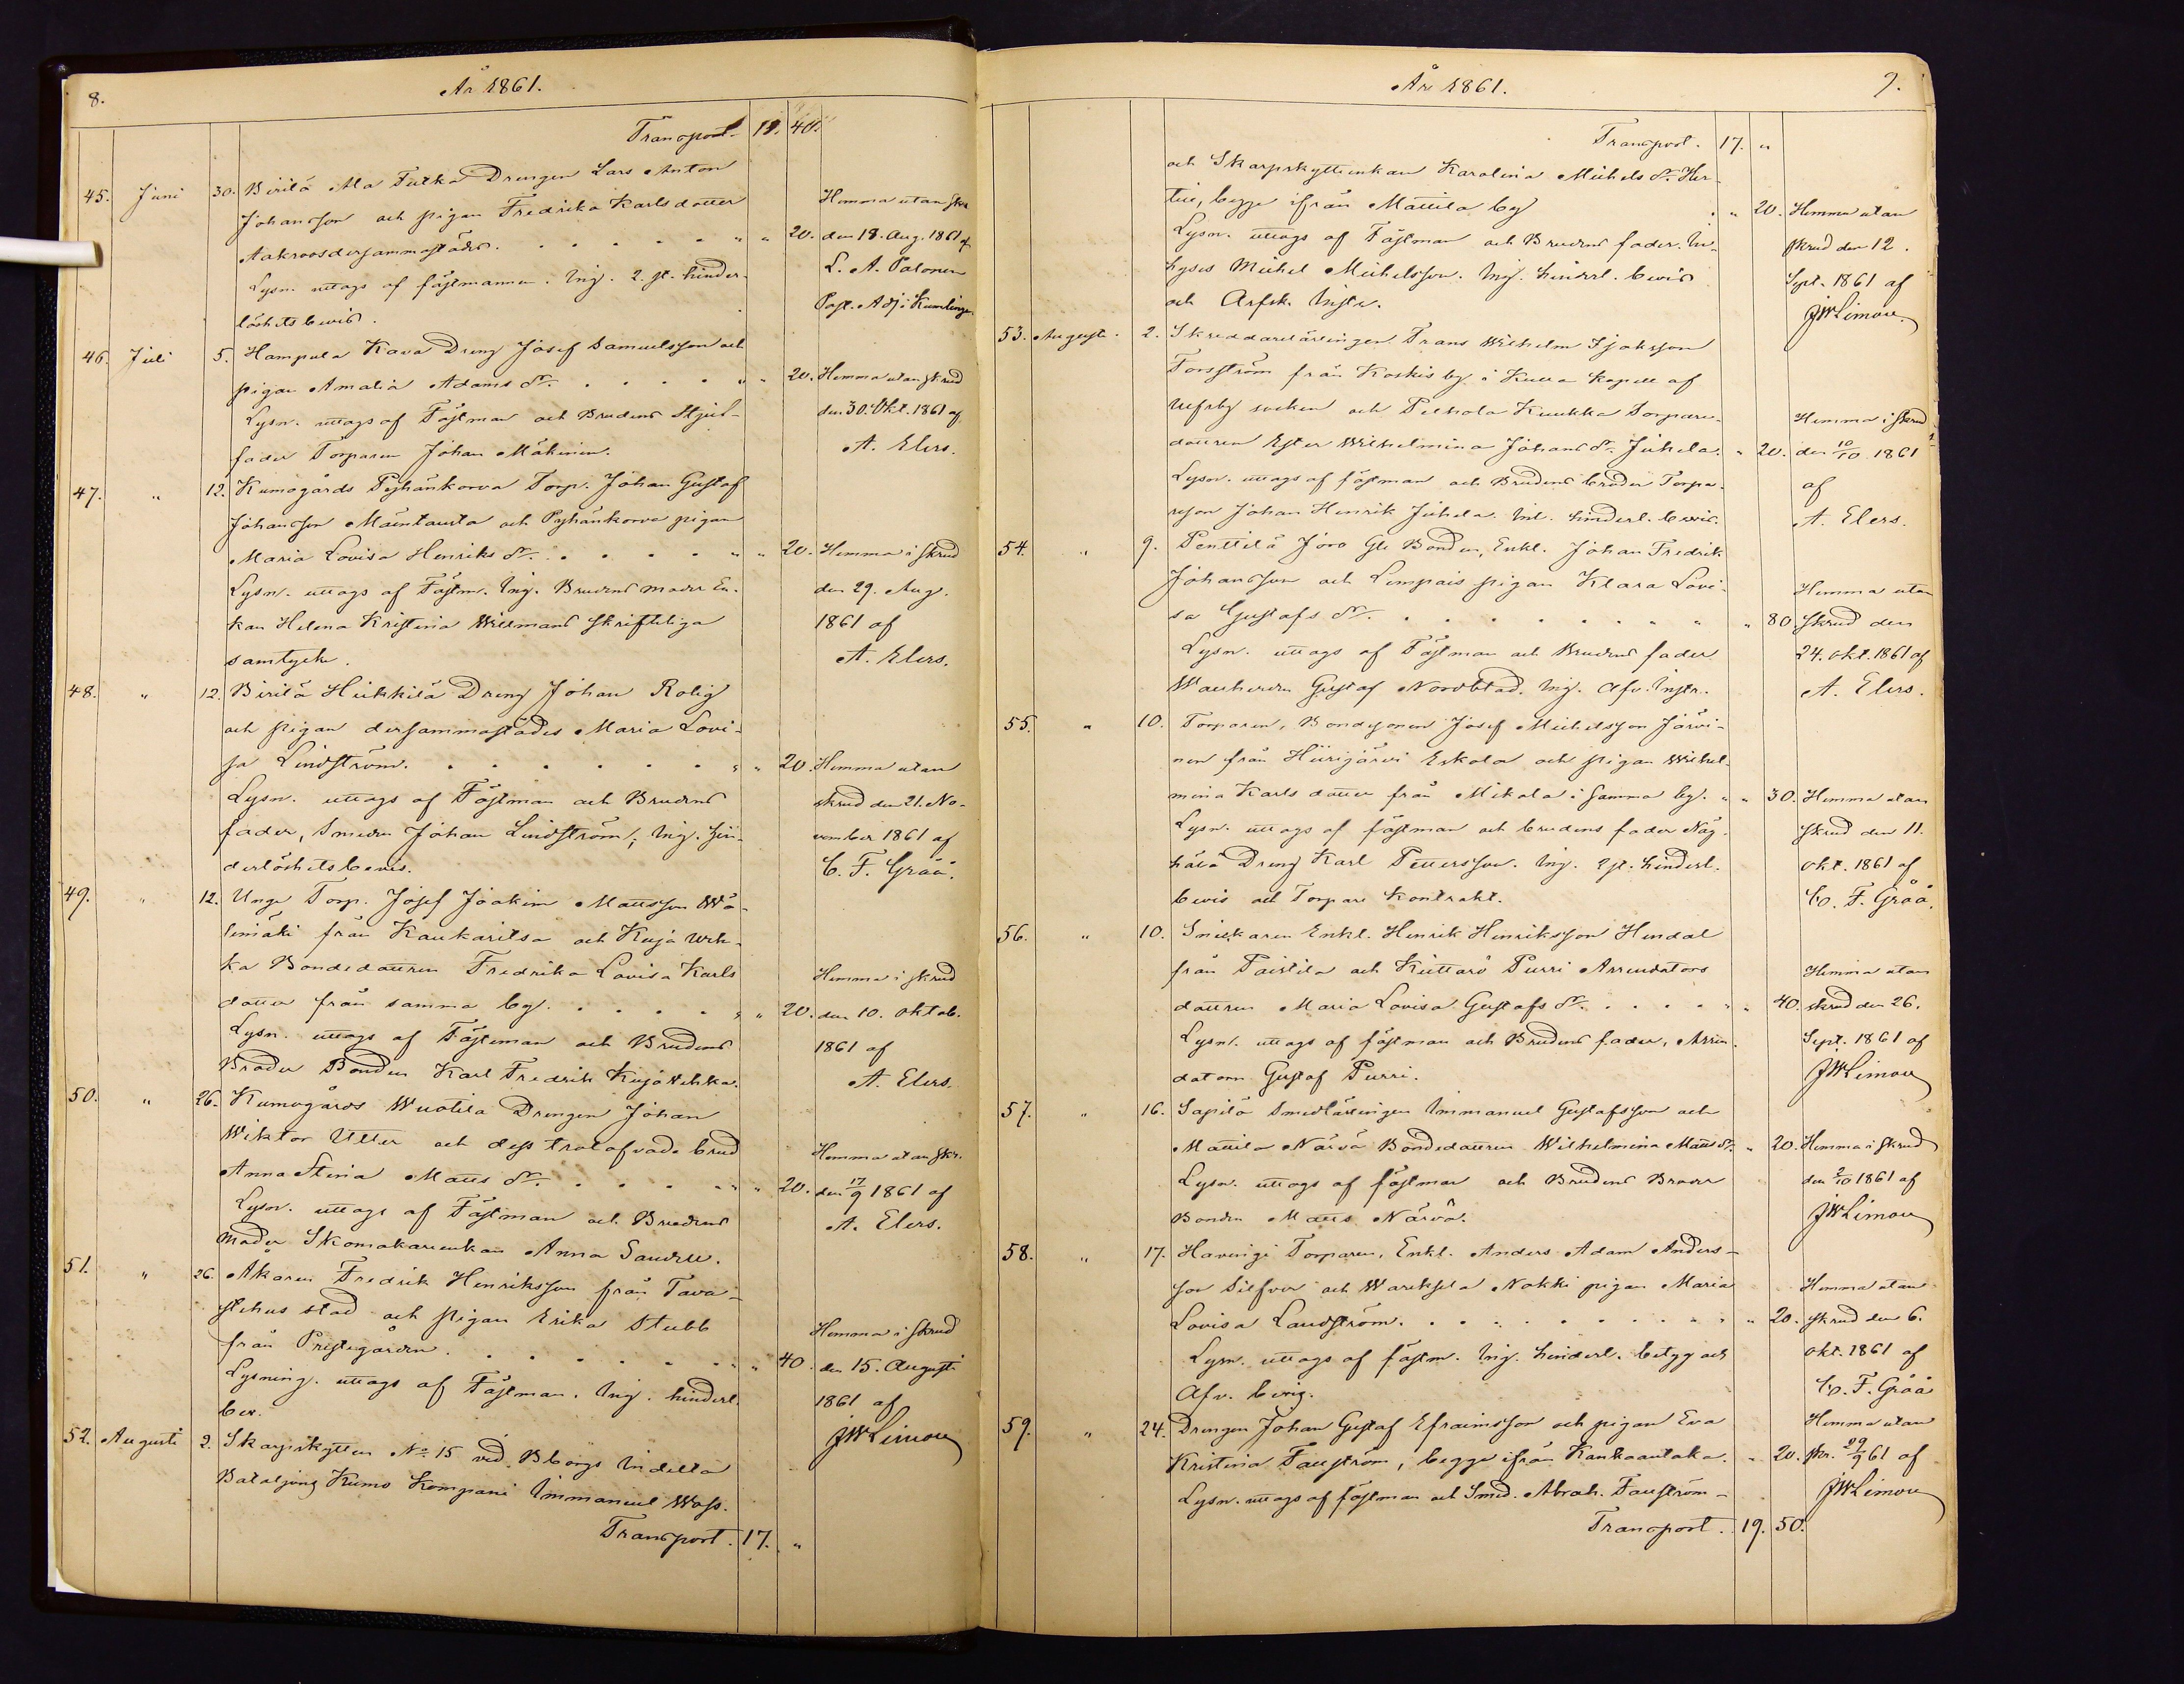 8.
År 1861.
Transport. 40.
45. Juni 30. Birilä Ala Tulka Drengen Lars Anton
Johansson och pigan Fredrika Karlsdotter
Aakroos dersammastädes. . . . . . " " 20.
Lysn. uttags af fästmannen. Ing. 2. st. hinder-
löshets bevis.
Hemma utan skr.
den 18. Aug. 1861 af
L. A. Palonen
Past. Adj. i Kumlinge
46. Juli 5. Hampula Kava Dreng Josef Samuelsson och
pigan Amalia Adams dr. . . . . " " 20.
Lysn. uttags af Fästman och Brudens Stjuf-
fader Torparen Johan Mäkinen.
Hemma utan skrud
den 30. Okt. 1861 af
A. Elers.
47. " 12. Kumogårds Pyhänkorva Torp. Johan Gustaf
Johansson Mäentausta och Pyhänkorva pigan
Maria Lovisa Henriks dr. . . . . " " 20.
Lysn. uttags af Fästm. Ing. Brudens moder En-
kan Helena Kristina Willmans skriftliga
samtycke.
Hemma i skrud
den 29. Aug.
1861 af
A. Elers.
48. " 12. Birilä Heikkilä Dreng Johan Rolig
och pigan dersammastädes Maria Lovi-
sa Lindström. . . . . . . " " 20.
Lysn. uttags af Fästman och Brudens
fader, Smeden Johan Lindström; Ing. hin-
derlöshets bevis.
Hemma utan
skrud den 21. No-
vember 1861 af
C. F. Gråå.
49. " 12. Unge Torp. Josef Joakim Mattsson Wä-
limäki från Kaukaritsa och Kuja Uch-
ka Bondedottren Fredrika Lovisa Karls
dotter från samma by. . . . . " " 20.
Lysn. uttags af Fästeman och Brudens
Broder Bonden Karl Fredrik Kuja Uchka.
Hemma i skrud
den 10. Oktob.
1861 af
A. Elers.
50. " 26. Kumogårds Wuolila Drengen Johan
Wiktor Utter och dess trolofvade brud
Anna Stina Matts dr. . . . . " " 20.
Lysn. uttags af Fästman och Brudens
Moder Skomakareenkan Anna Sandell.
Hemma utan skr.
den 17/9 1861 af
A. Elers.
51. " 26. Åkaren Fredrik Henriksson från Tava-
stehus stad och pigan Erika Stubb
från Prestegården. . . . . . " " 40.
Lysning. uttags af Fästman. Ing. hinderl.
bev.
Hemma i skrud
den 15. Augusti
1861 af
JWLimon
52. Augusti 2. Skarpskytten No 15 vid Bborgs Indelta
Bataljons Kumo Kompani Immanuel Wass.
Transport. 17. "
År 1861.
9.
Transport. 17. "
och Skarpskytteenkan Karolina Michels dr. Her-
, begge ifrån Mattila by . " 20.
Lysn. uttags af Fästman och Brudens fader In-
hyses Michel Michelsson. Ing. hinderl. bevis
och Arfsk. Instr.
Hemma utan
skrud den 12.
Sept. 1861 af
JWLimon
53. Augusti. 2. Skreddarelärlingen Frans Wilhelm Isaksson
Forsström från Koskis by i Kulla Kapell af
Ulfsby socken och Peltola Kuukka Torpare-
dottren Ester Wilhelmina Johans dr. Juhela. " 20.
Lysn. uttags af fästman och Brudens broder Torpa-
reson Johan Henrik Juhela. Inl. hinderl. bevis.
Hemma i skrud
den 10/10 1861
af
A. Elers.
54. " 9. Penttilä Jooo Gle Bonden, Enkl. Johan Fredrik
Johansson och Lempais pigan Klara Lovi-
sa Gustafs dr. . . . . . . . " " " 80.
Lysn. uttags af Fästman och Brudens fader
Wanherrn Gustaf Nordblad. Ing. Afv. Instr.
Hemma utan
skrud den
24. Okt. 1861 af
A. Elers.
55. " 10. Torparen, Bondesonen Josef Michelsson Järvi-
nen från Hiirijärvi Eskola och pigan Wilhel-
mina Karls dotter från Mikola i samma by. " " 30.
Lysn. uttags af fästman och brudens fader Näy-
hälä Dreng Karl Pettersson. Ing. 2 st. hinderl.
bevis och Torpare Kontrakt.
Hemma utan
skrud den 11.
Okt. 1861 af
C. F. Gråå.
56. " 10. Snickaren Enkl. Henrik Henriksson Hendal
från Paistila och Kuttarö Purri Arrendators
dottren Maria Lovisa Gustafs dr. . . . . " " 40.
Lysn. uttags af fästman och Brudens fader, Arren-
datorn Gustaf Purri.
Hemma utan
skrud den 26.
Sept. 1861 af
JWLimon
57. " 16. Sapilä Smedlärlingen Immanuel Gustafsson och
Mattila Närvä Bondedottren Wilhelmina Matts dr. " 20.
Lysn. uttags af fästman och Brudens Broder
Bonden Matts Närvä.
Hemma i skrud
den 2/10 1861 af
JWLimon
58. " 17. Haveingi Torparen, Enkl. Anders Adam Anders-
son Silfver och Warekselä Nokki pigan Maria
Lovisa Landström. . . . . . . . " " 20.
Lysn. uttags af fästm. Ing. hinderl. betyg och
Afv. bevis.
Hemma utan
skrud den 6.
Okt. 1861 af
C. F. Gråå
59. " 24. Drengen Johan Gustaf Efraimsson och pigan Eva
Kristina Fauström, begge ifrån Kankaantaka. " 20.
Lysn. uttags af fästman och Smed. Abrah. Fauström-
Hemma utan
skr. 29/9 61 af
JWLimon
Transport. 19. 50.